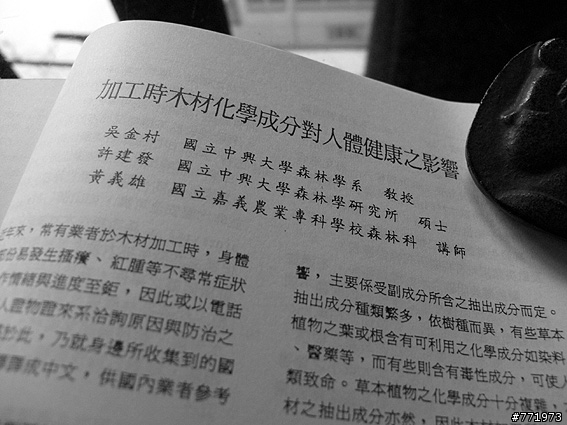 加工時木材化學成分對人體健康之影響
吳金村 國立中興大學森林學系 教授
許建發 國立中興大學森林學研究所 碩士
黃義雄 國立嘉義農業專科學校森林科 講師
年來，常有業者於木材加工時，身體
部份易發生搔癢、紅腫等不尋常症狀
作情緒與進度至鉅，因此或以電話
人證物證來系洽詢原因與防治之
於此，乃就身邊所收集到的國
譯成中文，供國內業者參考
響，主要係受副成分所含之抽出成分而定。
抽出成分種類繁多，依樹種而異，有些草本
植物之葉或根含有可利用之化學成分如染料
、醫藥等，而有些則含有毒性成分，可使人
類致命。草本植物之化學成分十分複雜，
材之抽出成分亦然，因此木材
#771973